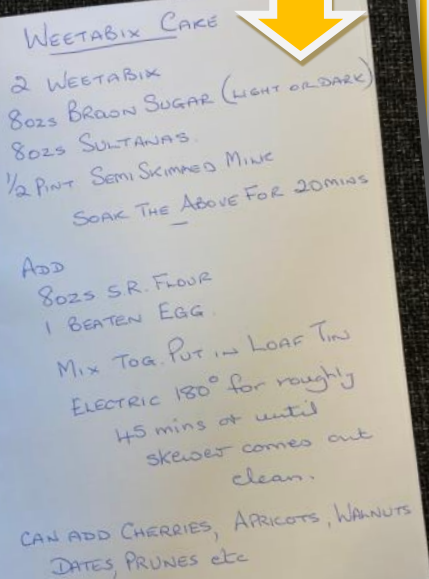 WEETABIX CAKE
2 WEETABIX
8OZS BROWN SUGAR (LIGHT OR DARK)
8OZS SULTANAS.
1/2 PINT SEMI SKIMMED MILK
SOAK THE ABOVE FOR 20 MINS
ADD
8OZS S.R. FLOUR
1 BEATEN EGG.
MIX TOG. PUT IN LOAF TIN
ELECTRIC 180° for roughly
45 mins or until
skewer comes out
clean.
CAN ADD CHERRIES, APRICOTS, WALNUTS
DATES, PRUNES etc